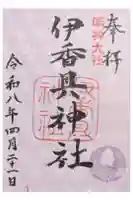 奉拝
名神大社
伊香具神社
令和八年四月二十一日